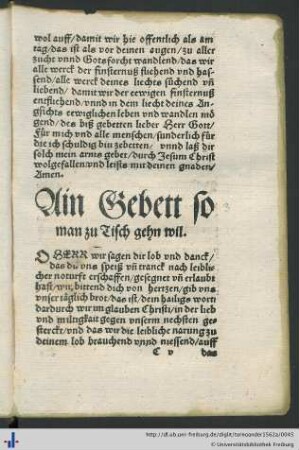 wol auff/damit wir hie offentlich als am
tag/das ist als vor deinen augen/zu aller
zucht vnnd Gots forcht wandlend/das wir
alle werck der finsternuß fliehend vnd has-
send/alle werck deines liechts sůchend vñ
liebend/damit wir der eewigen finsternuß
entfliehend/vnnd in dem liecht deines An-
gsichts eewiglichen leben vnd wandlen mö
gend/des biß gebetten lieber Herr Gott/
Für mich vnd alle menschen/sunderlich für
die ich schuldig bin zebetten/ vnnd laß dir
solch mein arms gebet/durch Jesum Christ
wolgefallen vnd leists mir deinen gnaden/
Amen.
Ain Gebett so
man zu Tisch gehn wil.
O HERR wir sagen dir lob vnd danck/
das du vns speiß vñ tranck nach leiblic
her noturft erschaffen/gesegnet vñ erlaubt
hast/wir bittend dich von hertzen/gib vns
vnser täglich brot/das ist/dein hailigs wort
dardurch wir im glauben Christi/in der lieb
vnd miltigkait gegen vnserm nechsten ges-
terckt/vnd das wir die leibliche narung zu
deinem lob brauchend vnnd niessend/auff
C v das
http://dl.ub.uni-freiburg.de/diglit/tornoander1562a/0045
© Universitätsbibliothek Freiburg